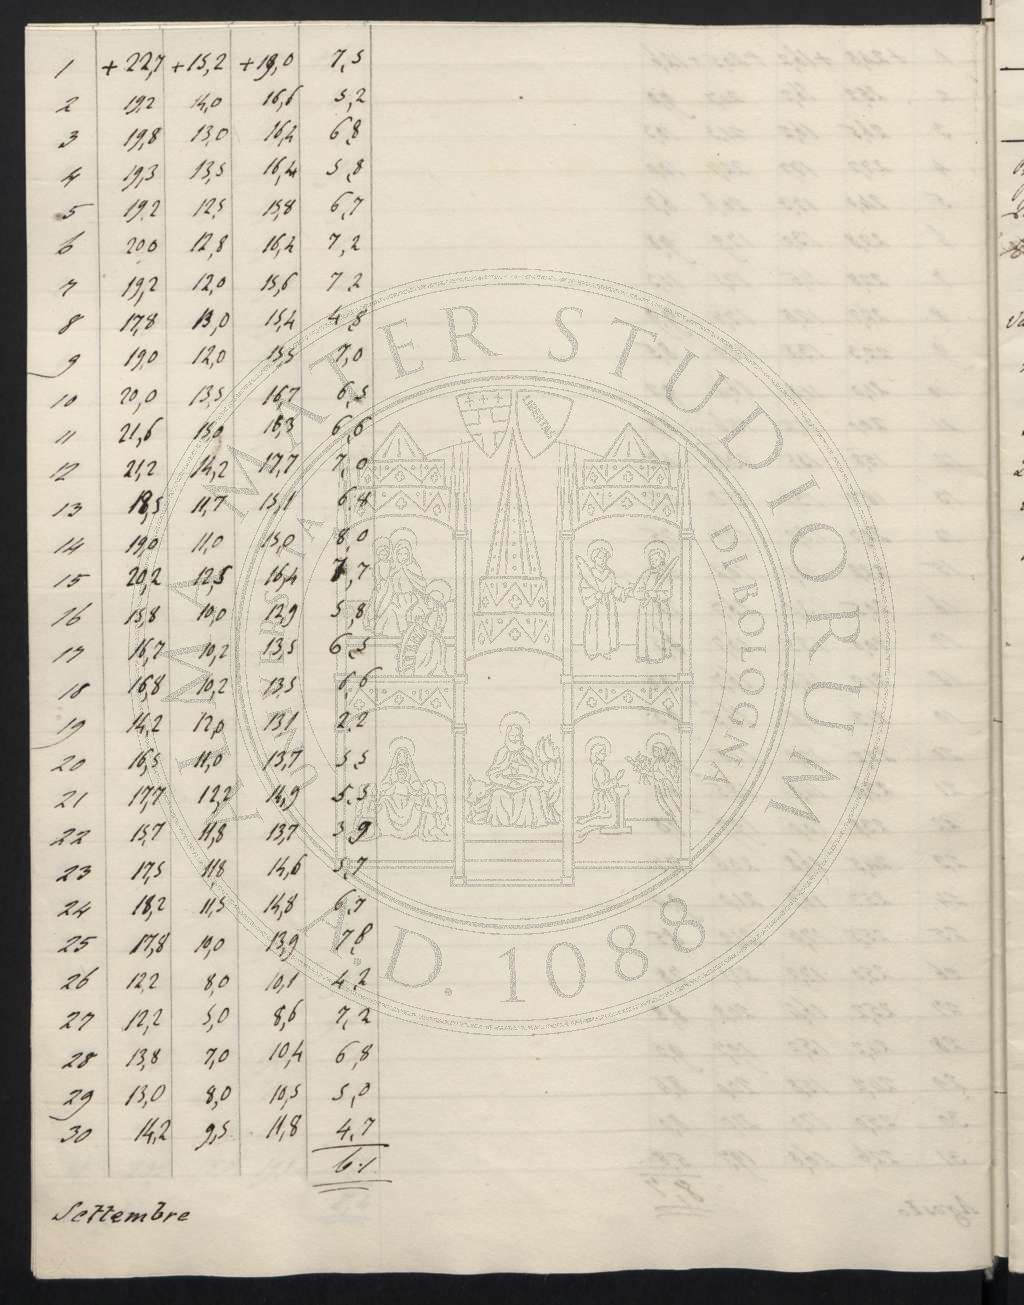 1 +22,7 +15,2 +18,0 7,5
2 19,2 14,0 16,6 5,2
3 19,8 13,0 16,2 6,8
4 19,3 13,5 16,4 5,8
5 19,2 12,5 15,8 6,7
6 20,0 12,8 16,2 7,2
7 19,2 12,0 15,6 7,2
8 17,8 13,0 15,4 4,8
9 19,0 12,0 15,5 7,0
10 20,0 13,5 16,7 6,5
11 21,6 15,0 18,3 6,6
12 21,2 14,2 17,7 7,0
13 18,5 11,7 15,1 6,8
14 19,0 11,0 15,0 8,0
15 20,2 12,5 16,4 7,7
16 15,8 10,0 12,9 5,8
17 16,7 10,2 13,5 6,5
18 16,8 10,2 13,5 6,6
19 14,2 12,0 13,1 2,2
20 16,5 11,0 13,7 5,5
21 17,7 12,2 14,9 5,5
22 15,7 11,8 13,7 3,9
23 17,5 11,8 14,6 5,7
24 18,2 11,5 14,8 6,7
25 17,8 10,0 13,9 7,8
26 12,2 8,0 10,1 4,2
27 12,2 5,0 8,6 7,2
28 13,8 7,0 10,4 6,8
29 13,0 8,0 10,5 5,0
30 14,2 9,5 11,8 4,7
6.1
Settembre
ALMA MATER STUDIORUM
UNIVERSITA DI BOLOGNA
LIBERTAS
A.D. 1088